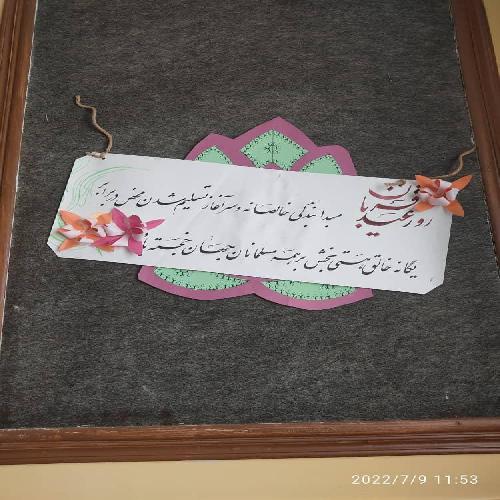 روز عید قربان
مبدا بندگی خالصانه و سرآغاز تسلیم شدن محض در برابر
یگانه خالق هستی بخش بر همه مسلمانان جهان خجسته باد
2022/7/9 11:53